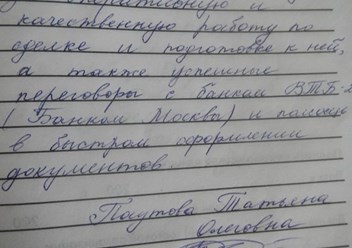 оперативную и
качественную работу по
сделке и подготовке к ней,
а также успешные
переговоры с банком ВТБ-2
(Банком Москвы) и помощь
в быстром оформлении
документов.
Паутова Татьяна
Олеговна